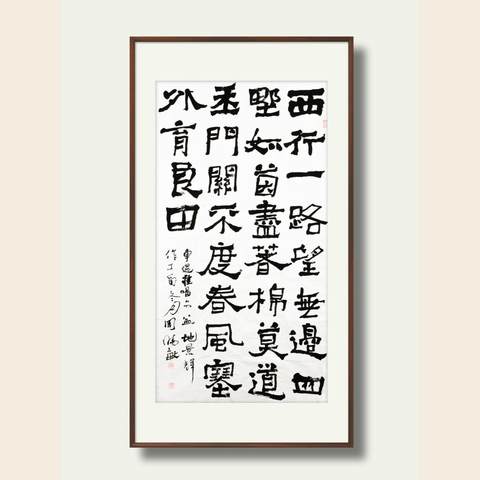 西行一路望無邊四
野如茵盡著棉莫道
玉門關不度春風塞
外育良田
作丁酉冬月周